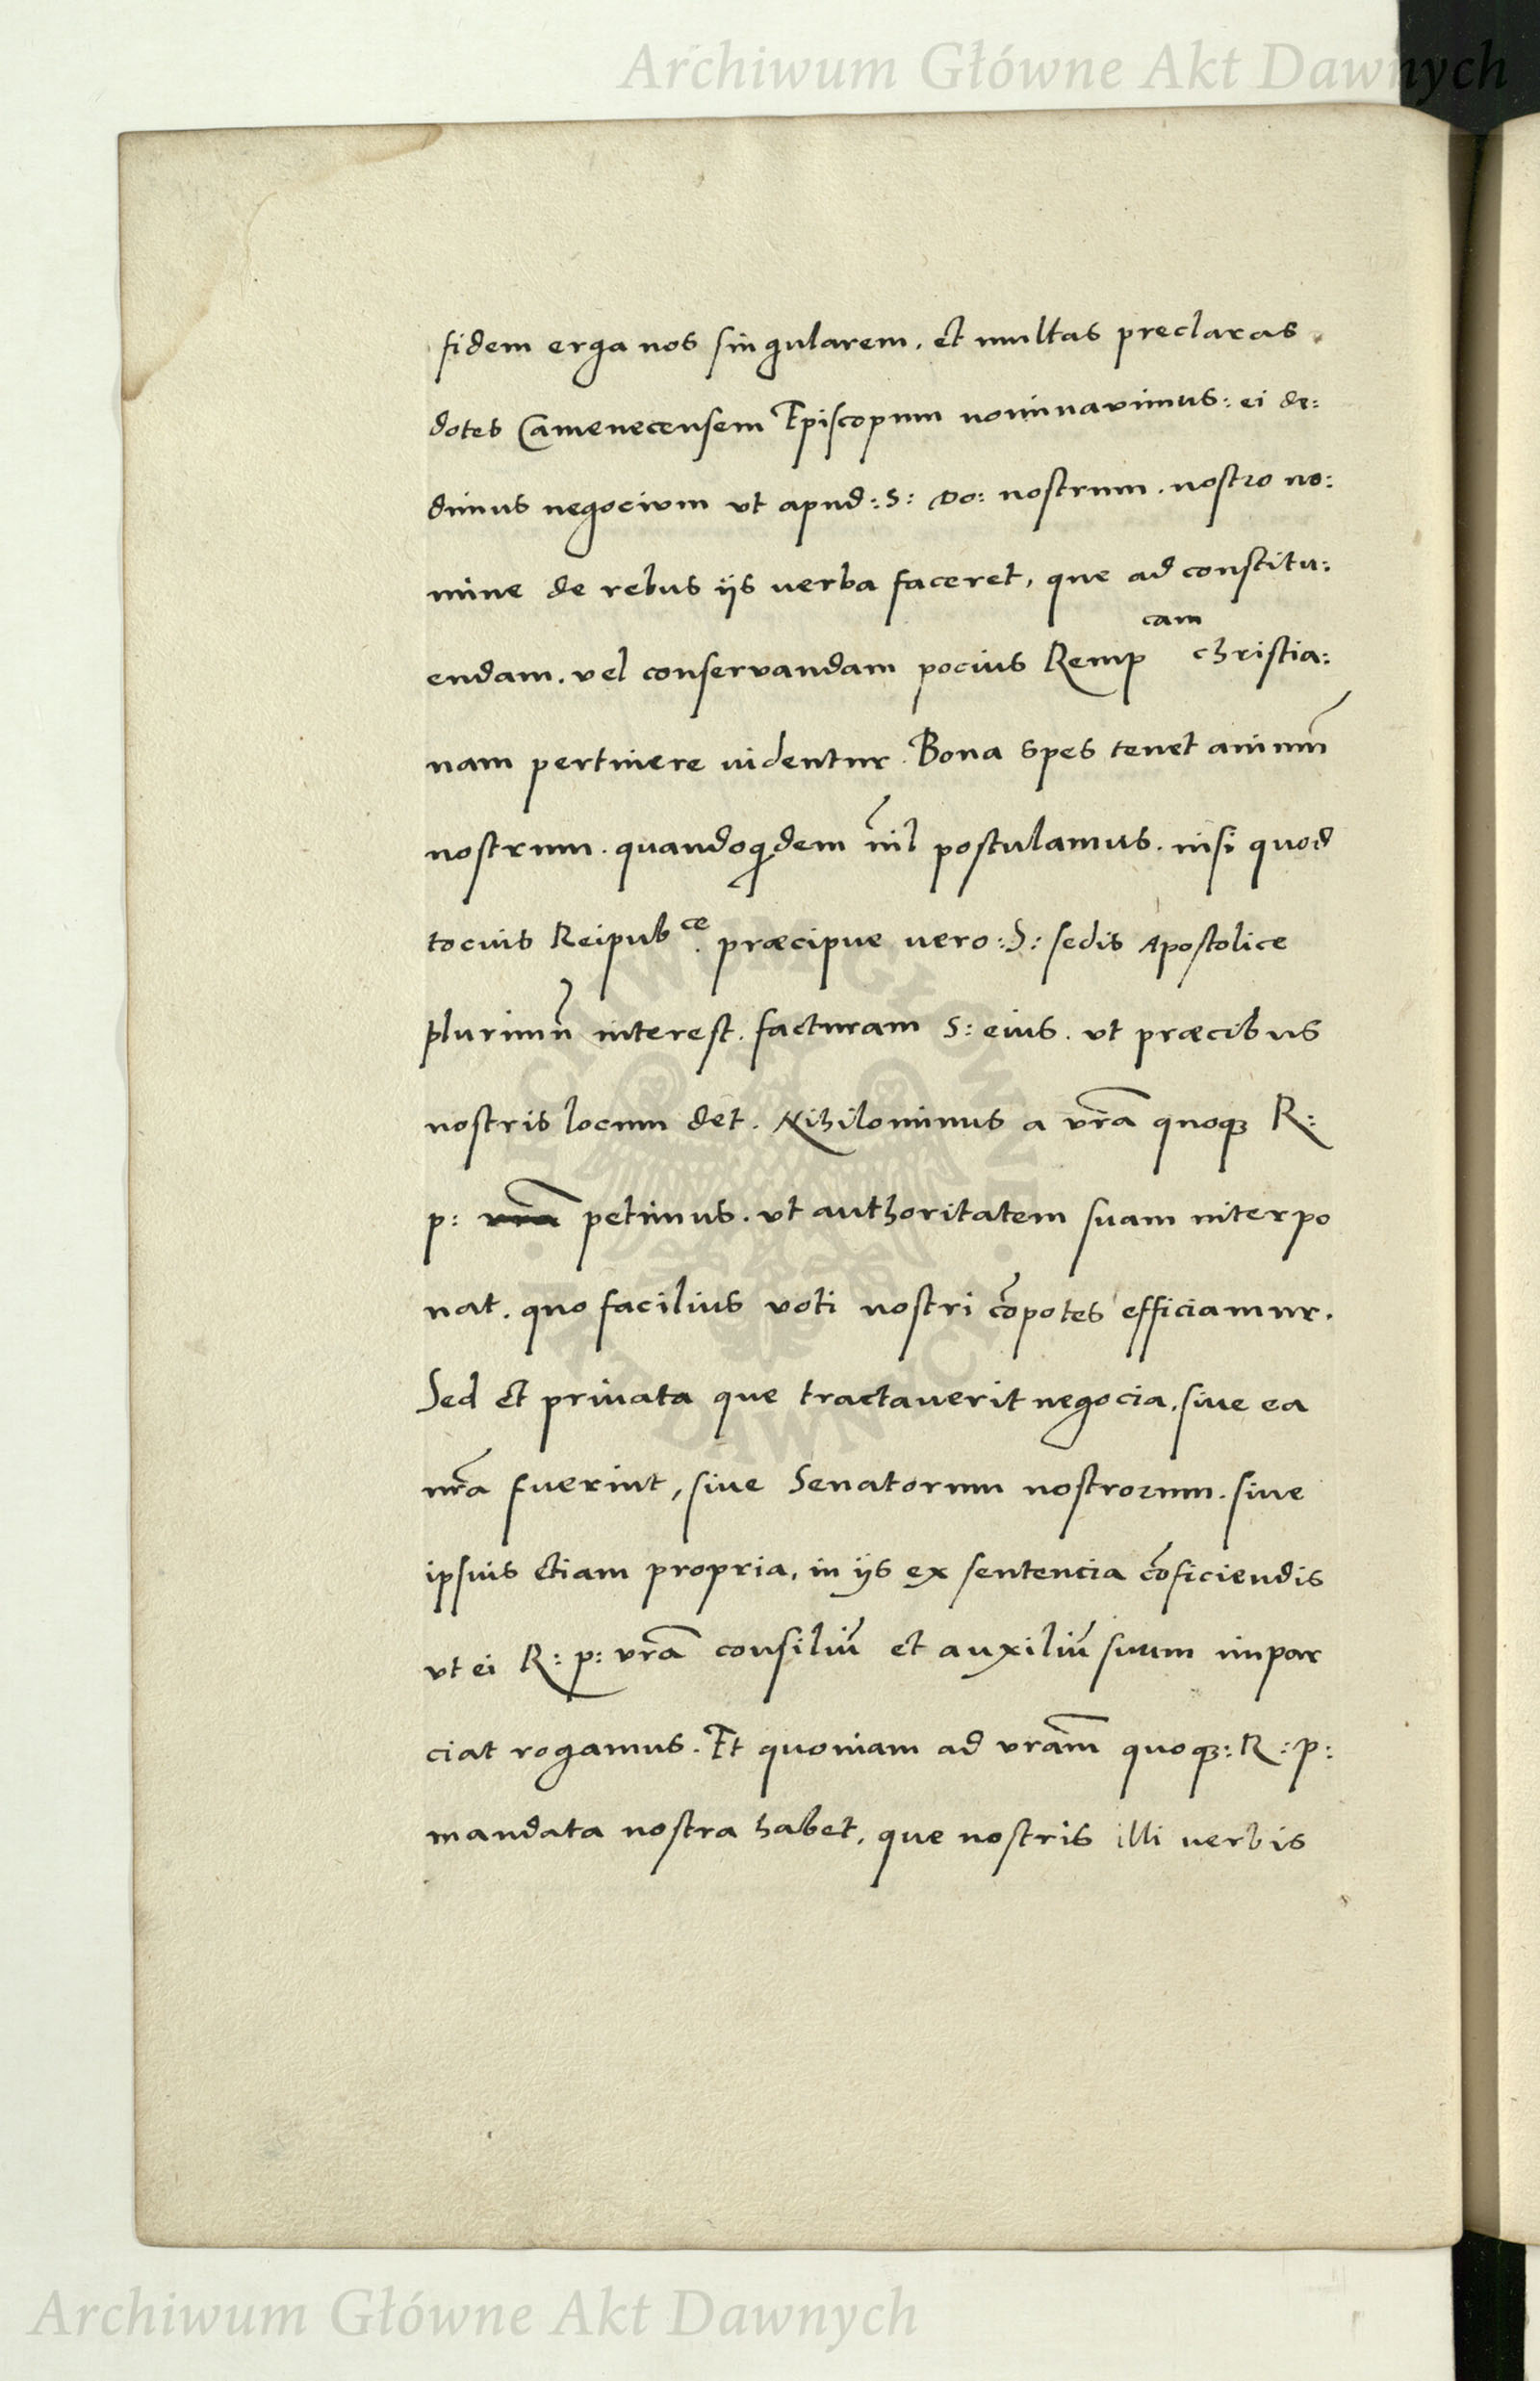 Archiwum Główne Akt Dawnych
fidem erga nos singularem. et multas preclaras
dotes Camenecensem Episcopum nominavimus: ei de:
dimus negocium ut apud: S: Do: nostrum. nostro no:
mine de rebus iis verba faceret, que ad constitu:
endam. vel conservandam pocius Remp cam christia:
nam pertinere uidentur. Bona spes tenet animū
nostrum. quandoqidem nīl postulamus. nisi quod
tocius Reipubce. præcipue vero: S: sedis Apostolice
plurimū interest. facturam S: eius. ut præcibus
nostris locum det. Nihilominus a vrā quoqꝫ R:
p: vrā petimus. ut authoritatem suam interpo
nat. quo facilius voti nostri cōpotes efficiamur.
Sed et privata que tractaverit negocia. sive ea
nrā fuerint, sive Senatorum nostrorum. sive
ipsius etiam propria, in iis ex sentencia cōficiendis
ut ei R: p: vrā consiliū et auxiliū suum impar
ciat rogamus. Et quoniam ad vrām quoqꝫ: R: p:
mandata nostra habet, que nostris illi verbis
ARCHIWUM GŁÓWNE AKT DAWNYCH
Archiwum Główne Akt Dawnych